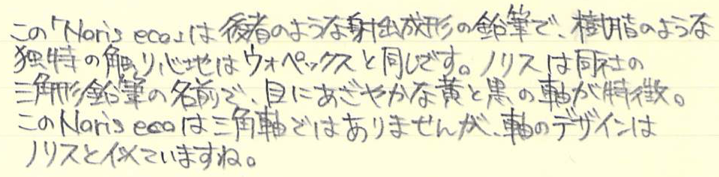 この「Noris eco」は後者のような射出成形の鉛筆で、樹脂のような
独特の触り心地はウォペックスと同じです。ノリスは同社の
三角形鉛筆の名前で、目にあざやかな黄と黒の軸が特徴。
このNoris ecoは三角軸ではありませんが、軸のデザインは
ノリスと似ていますね。